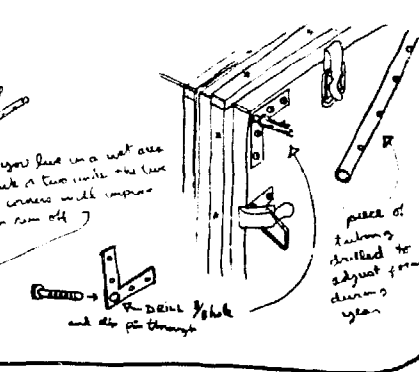 you live in a wet area
or two under the
corners will improve
run off
DRILL 3/8 hole
and pin through
piece of
tubing
drilled to
adjust
during
year